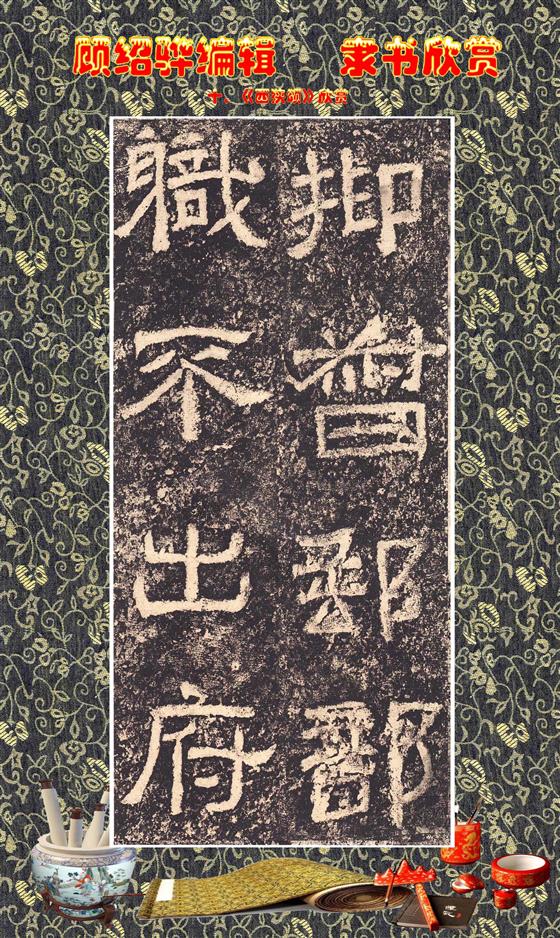 顾绍骅编辑 隶书欣赏
十、《西狭颂》欣赏
抑督郵部
職不出府